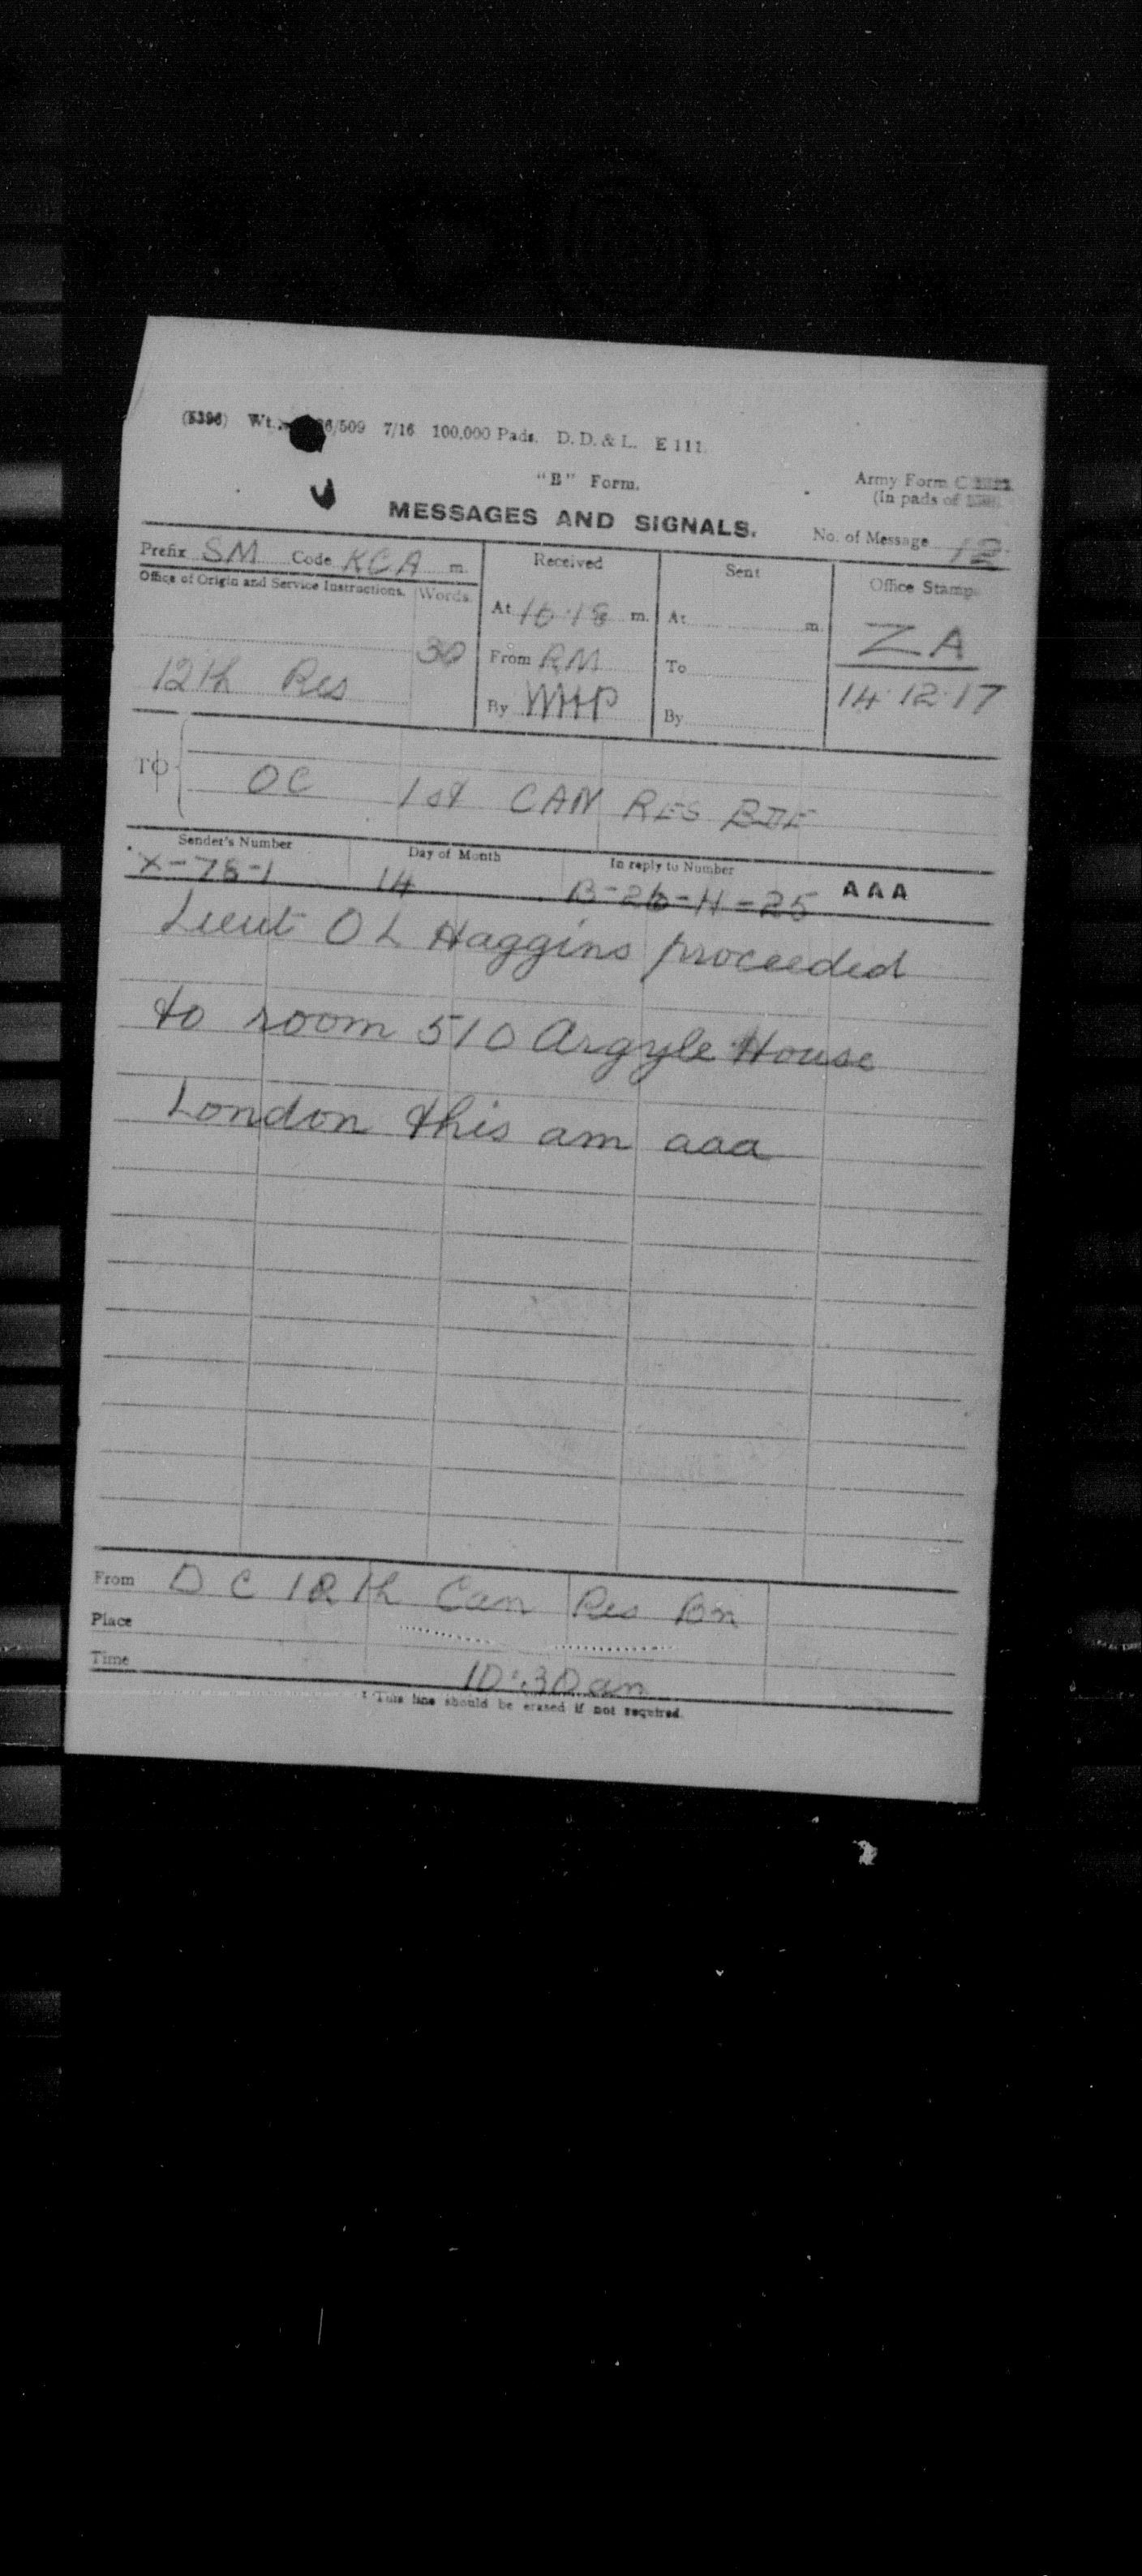 (5396) Wt. 6/509 7/16 100,000 Pads. D. D. & L. E 111.
"B" Form.
Army Form C
(In pads of
MESSAGES AND SIGNALS.
No. of Message 12
Prefix SM Code KCA m.
Received
Sent
Office Stamp.
Office of Origin and Service Instructions. Words.
At 10.18 m.
At m.
30
ZA
From RM
To
12th Res
14.12.17
By WHP
By
TO
OC 1st CAN RES BDE
Sender's Number
Day of Month
In reply to Number
AAA
X-78-1 14 B-26-H-25
Lieut O L Haggins proceeded
to room 510 Argyle House
London this am aaa
From O C 12th Can Res Bn
Place
Time 10:30 am
* This line should be erased if not required.